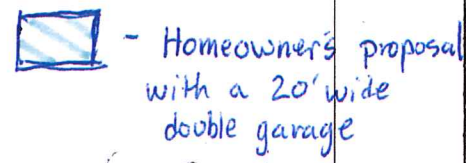 - Homeowner's proposal
with a 20' wide
double garage